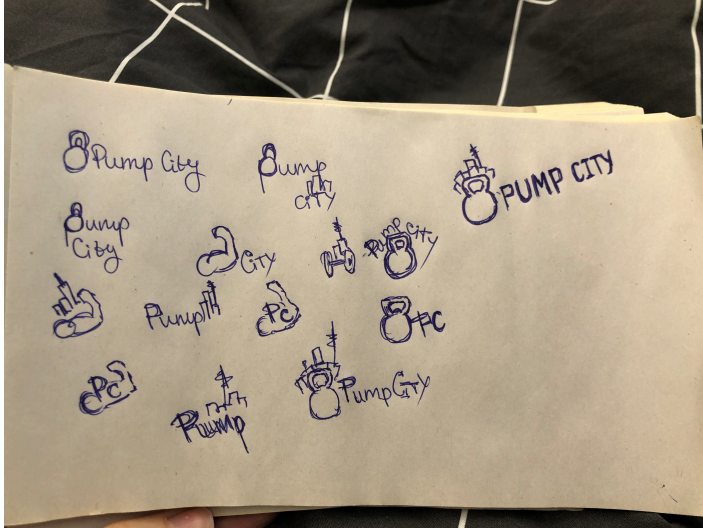 Pump City
Pump
CITY
PUMP CITY
Pump
City
City
Pump City
Pump
PC
PC
PC
Pump
Pump City